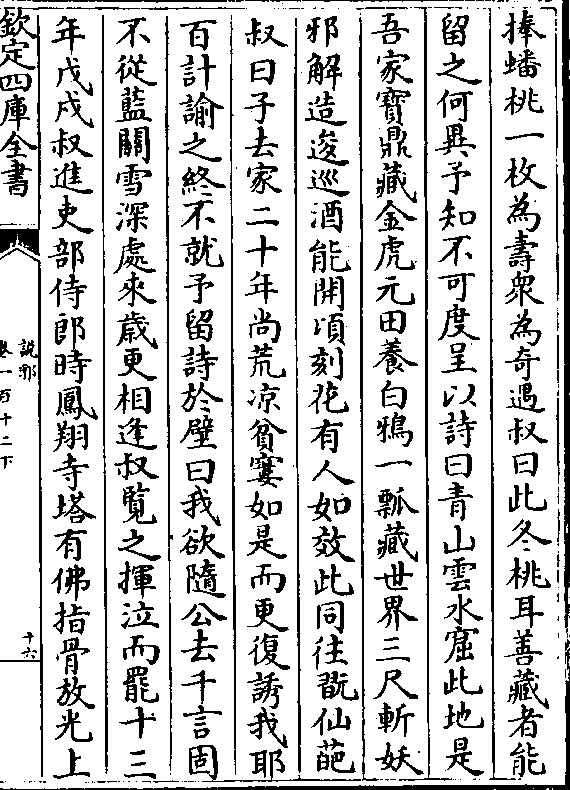 捧蟠桃一枚為壽衆為奇遇叔曰此冬桃耳善藏者能
留之何異予知不可度呈以詩曰青山雲水窟此地是
吾家寶鼎藏金虎元田養白鴉一瓢藏世界三尺斬妖
邪解造逡巡酒能開頃刻花有人如效此同往翫仙葩
叔曰子去家二十年尚荒凉貧窶如是而更復誘我耶
百計諭之終不就予留詩於壁曰我欲隨公去千言固
不從藍關雪深處來歳更相逢叔覽之揮泣而罷十三
年戊戍叔進吏部侍郎時鳳翔寺塔有佛指骨放光上
欽定四庫全書
說郛
卷一百十二下
十六